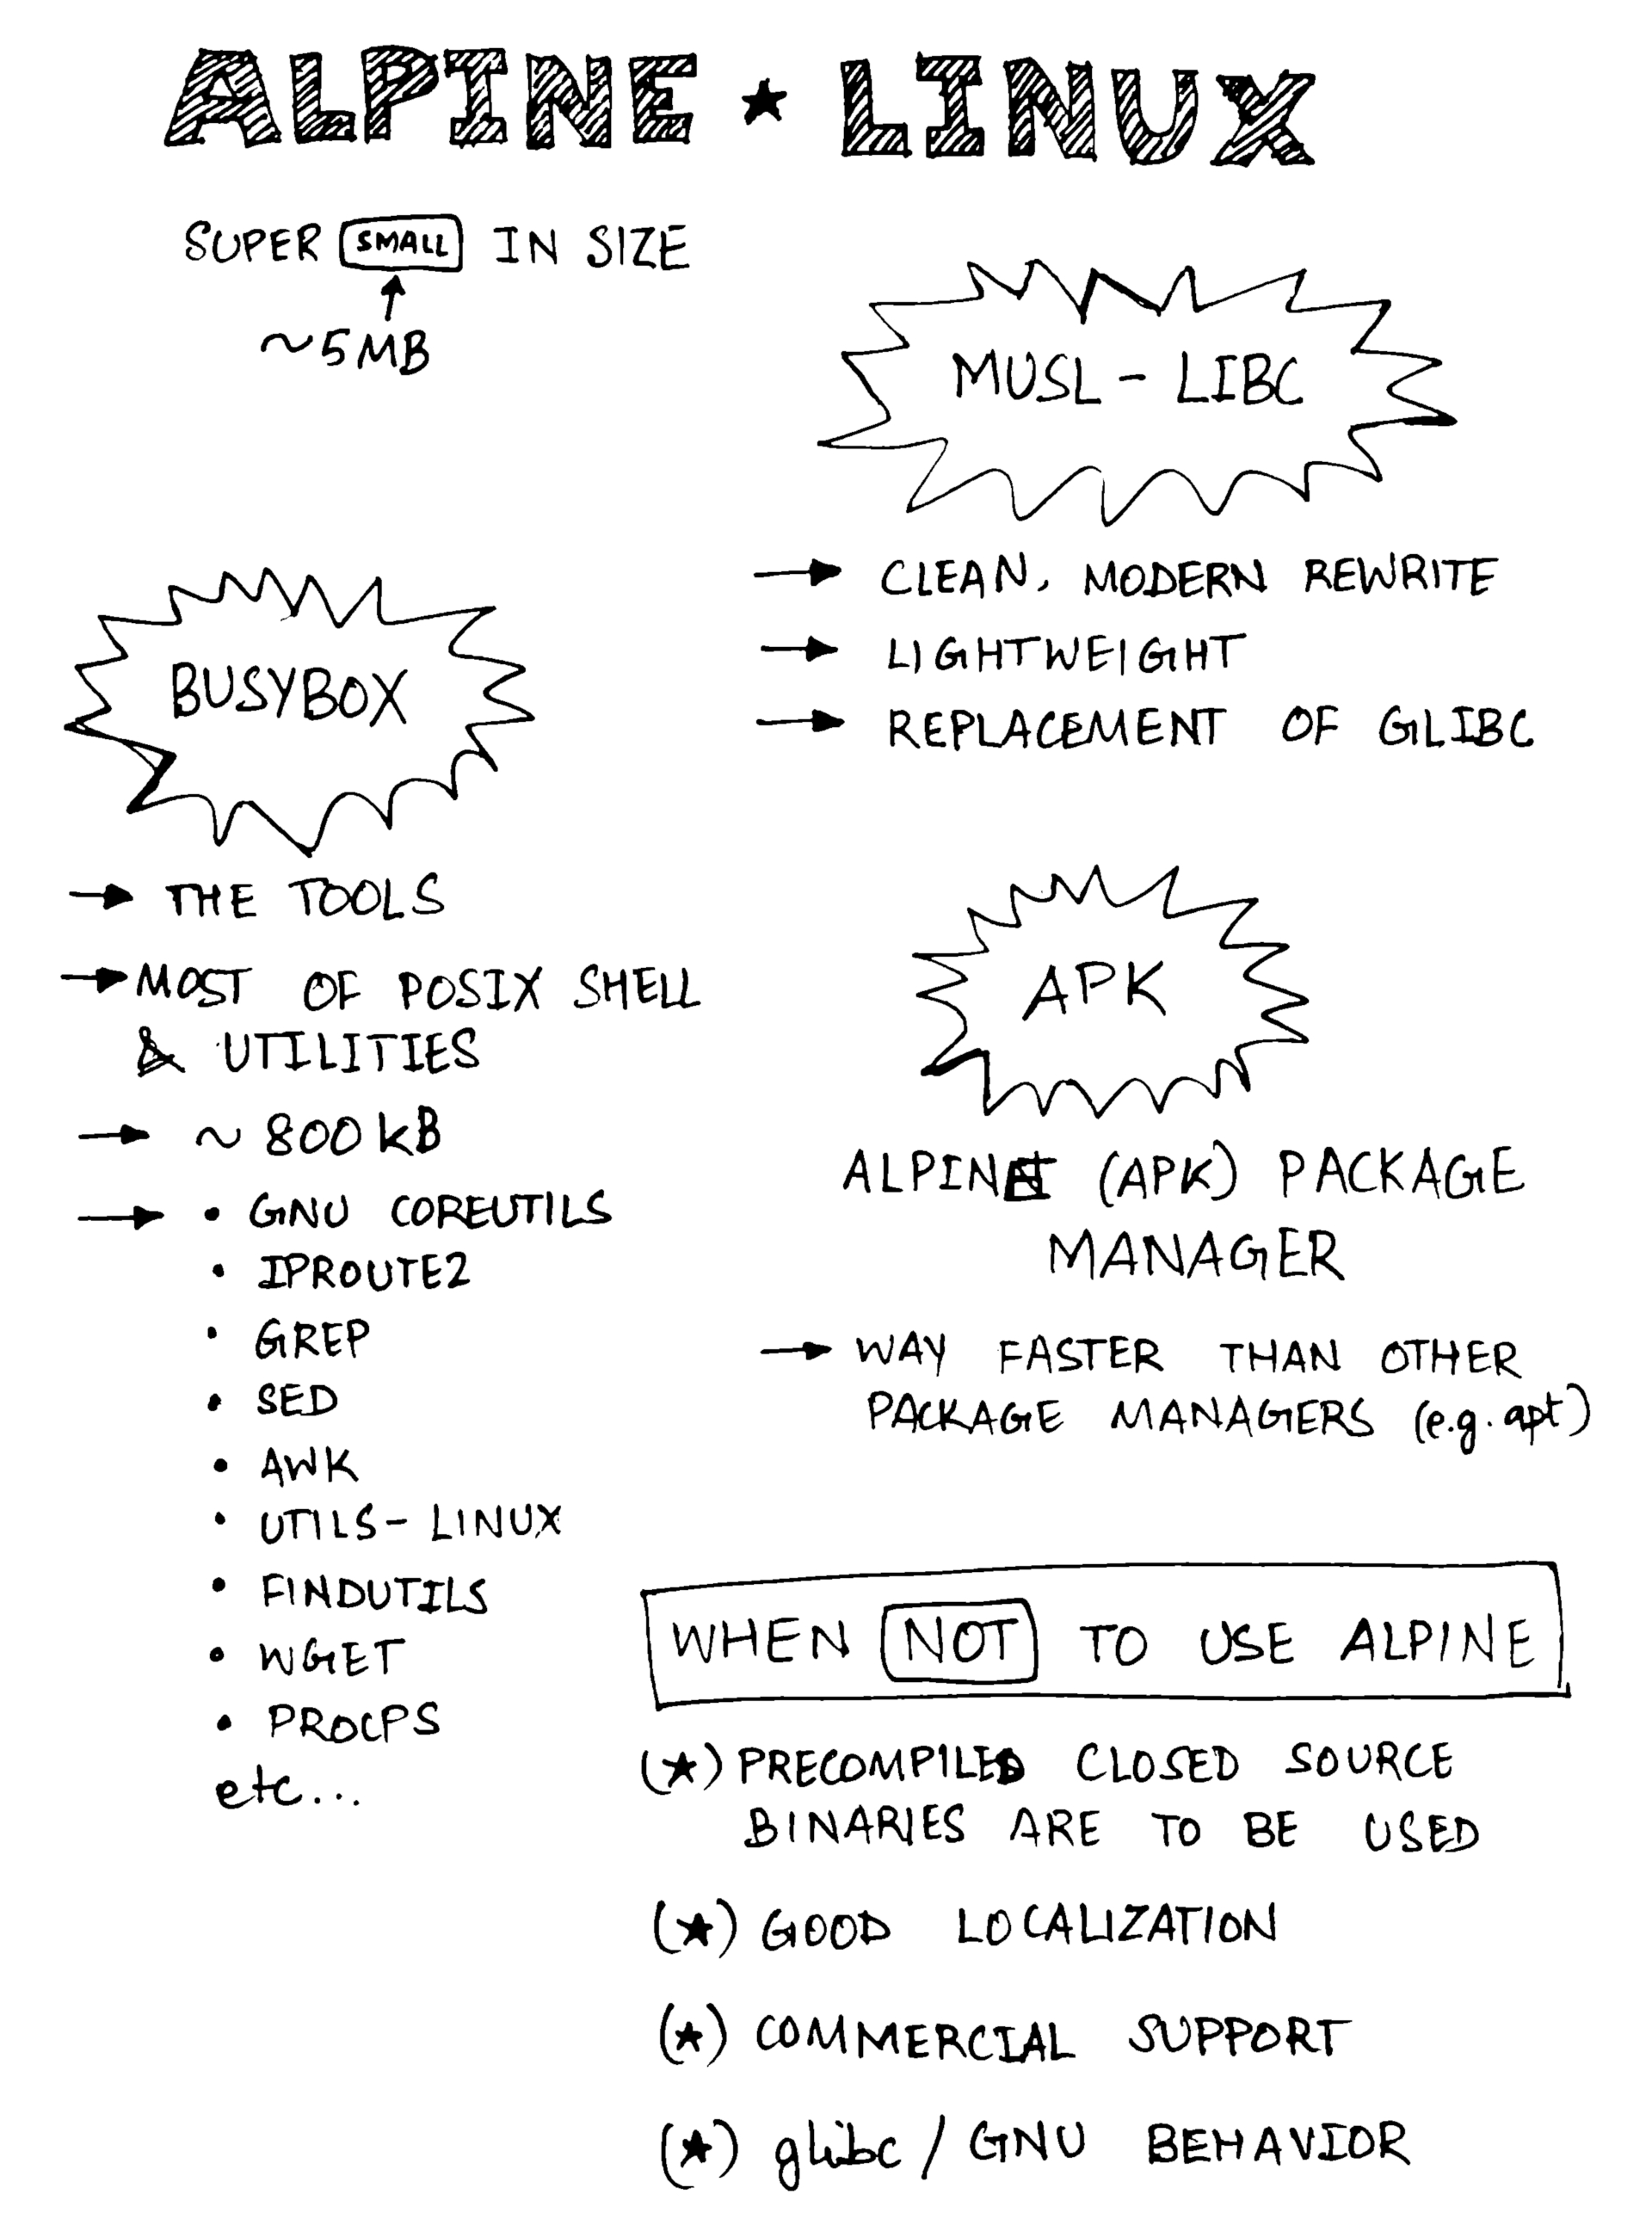 ALPINE ★ LINUX
SUPER SMALL IN SIZE
~5MB
MUSL - LIBC
→ CLEAN, MODERN REWRITE
→ LIGHTWEIGHT
→ REPLACEMENT OF GLIBC
BUSYBOX
→ THE TOOLS
→ MOST OF POSIX SHELL
& UTILITIES
→ ~ 800 kB
→ • GNU COREUTILS
• IPROUTE2
• GREP
• SED
• AWK
• UTILS-LINUX
• FINDUTILS
• WGET
• PROCPS
etc...
APK
ALPINE (APK) PACKAGE
MANAGER
→ WAY FASTER THAN OTHER
PACKAGE MANAGERS (e.g. apt)
WHEN NOT TO USE ALPINE
(★) PRECOMPILED CLOSED SOURCE
BINARIES ARE TO BE USED
(★) GOOD LOCALIZATION
(★) COMMERCIAL SUPPORT
(★) glibc / GNU BEHAVIOR